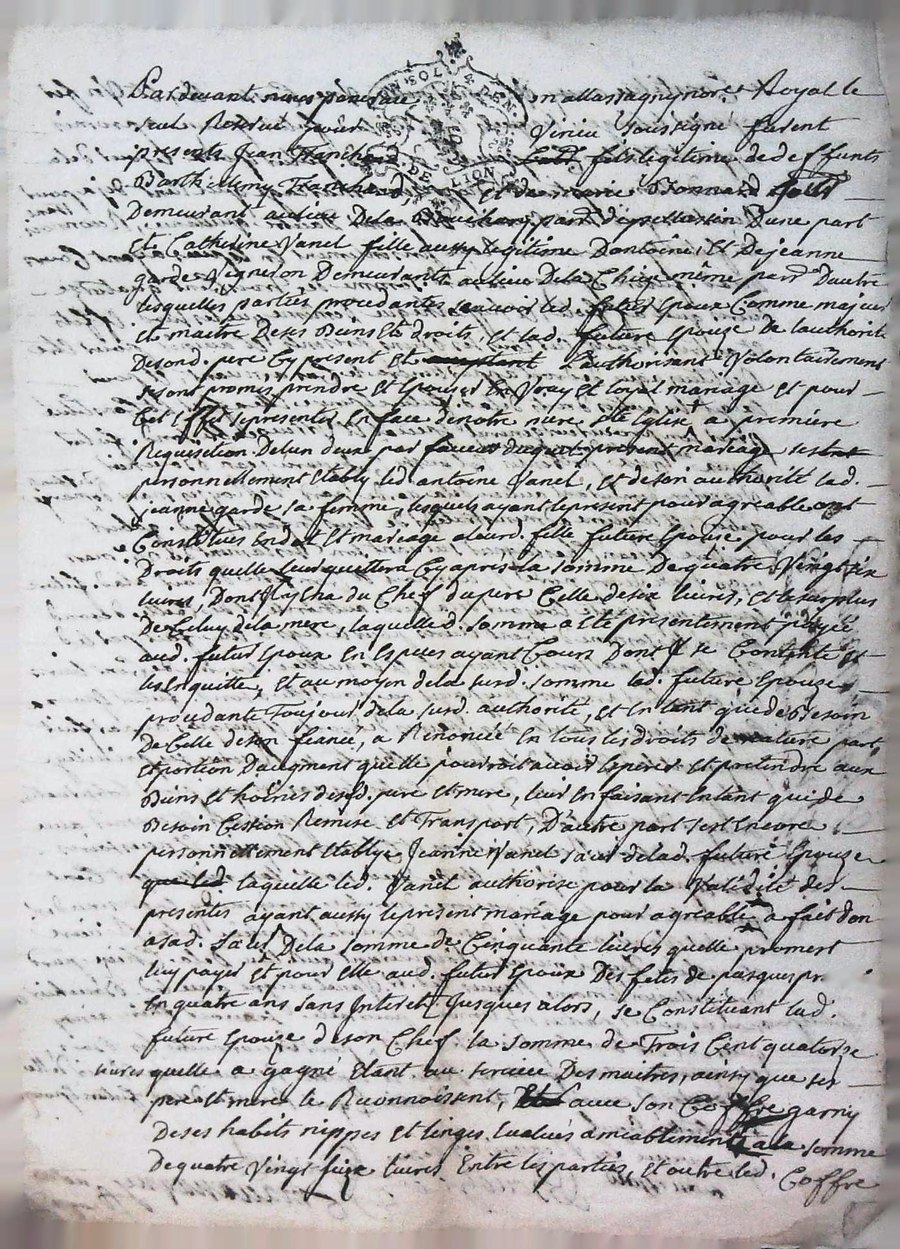 Pardevant nous
en allassagny nore Royal le
seul Reservé pour Venieu Soussigné furent
presents Jean Franchard fils legitime de deffunts
Barthelemy Franchard Et de marie Bonnard
Demeurant au lieu De la par. D'une part
Et Catherine Vanel fille aussy legitime D'antoine, Et De jeanne
garde Vigneron Demeurants au lieu De la même par. D'autre
lesquelles parties procedantes scavoir led. futur Epoux Comme majeur
et maitre De ses Biens Et droits, et lad. future Epouze De l'authorité
De sond. pere Cy present et L'authorisant Volontairement
se sont promis prendre et Epouser En Vray et loyal mariage et pour
Cet se presenter En face De notre mere Ste Eglise a premiere
Requisetion De l'un d'eux par
personnellement Etably led. antoine Vanel, et de son authorité lad.
jeanne garde sa femme, lesquels ayant le present pour agreable ont
Constitues En dot Et mariage a leurd. fille future Epouse pour les
Droits quelle leur quittera Cy après la somme De quatre Vingt six
livres, Dont Il y en a du Chef du pere Celle de six livres, et le surplus
De Celuy de la mere, laquelle d. somme a Eté presentement payée
aud. futur Epoux En Especes ayant Cours Dont Il se Contente et
les En quitte, Et au moyen de la susd. somme lad. future Epouze
procedante Toujour de la susd. authorité, et En tant que de Besoin
De Celle de son fiancé, a Renoncée En tous les droits de part,
Et portion D'augment quelle pourroit avoir Esperer et pretendre aux
Biens Et hoeries desd. pere et mere, leur En faisant En tant que de
Besoin Cession Remise et Transport, D'autre part s'est Encore
personnellement Etablye Jeanne Vanel saeur de lad. future Epouze
que led laquelle led. Vanel authorise pour la Validité des
presentes ayant aussy le present mariage pour agreable a fait don
a sad. saeur De la somme de Cinquante livres quelle promest
luy payer et pour elle aud. futur Epoux Des fetes de pasques pr.
En quatre ans sans Interetz Jusques alors, se Constituant lad.
future Epouze de son Chef la somme de Trois Cent quatorze
livres quelle a gagné Etant au service Des maitres, ainsy que ses
pere et mere le Reconnoissent, avec son Coffre garny
De ses habits nippes et linges Evalués amiablement a la somme
De quatre Vingt seize livres Entre les parties, et outre led. Coffre